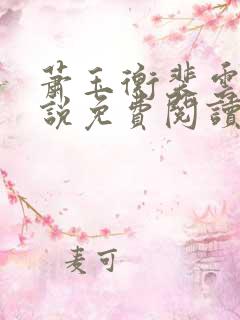 蕭玉衡裴雲
說免費閱讀
麦可